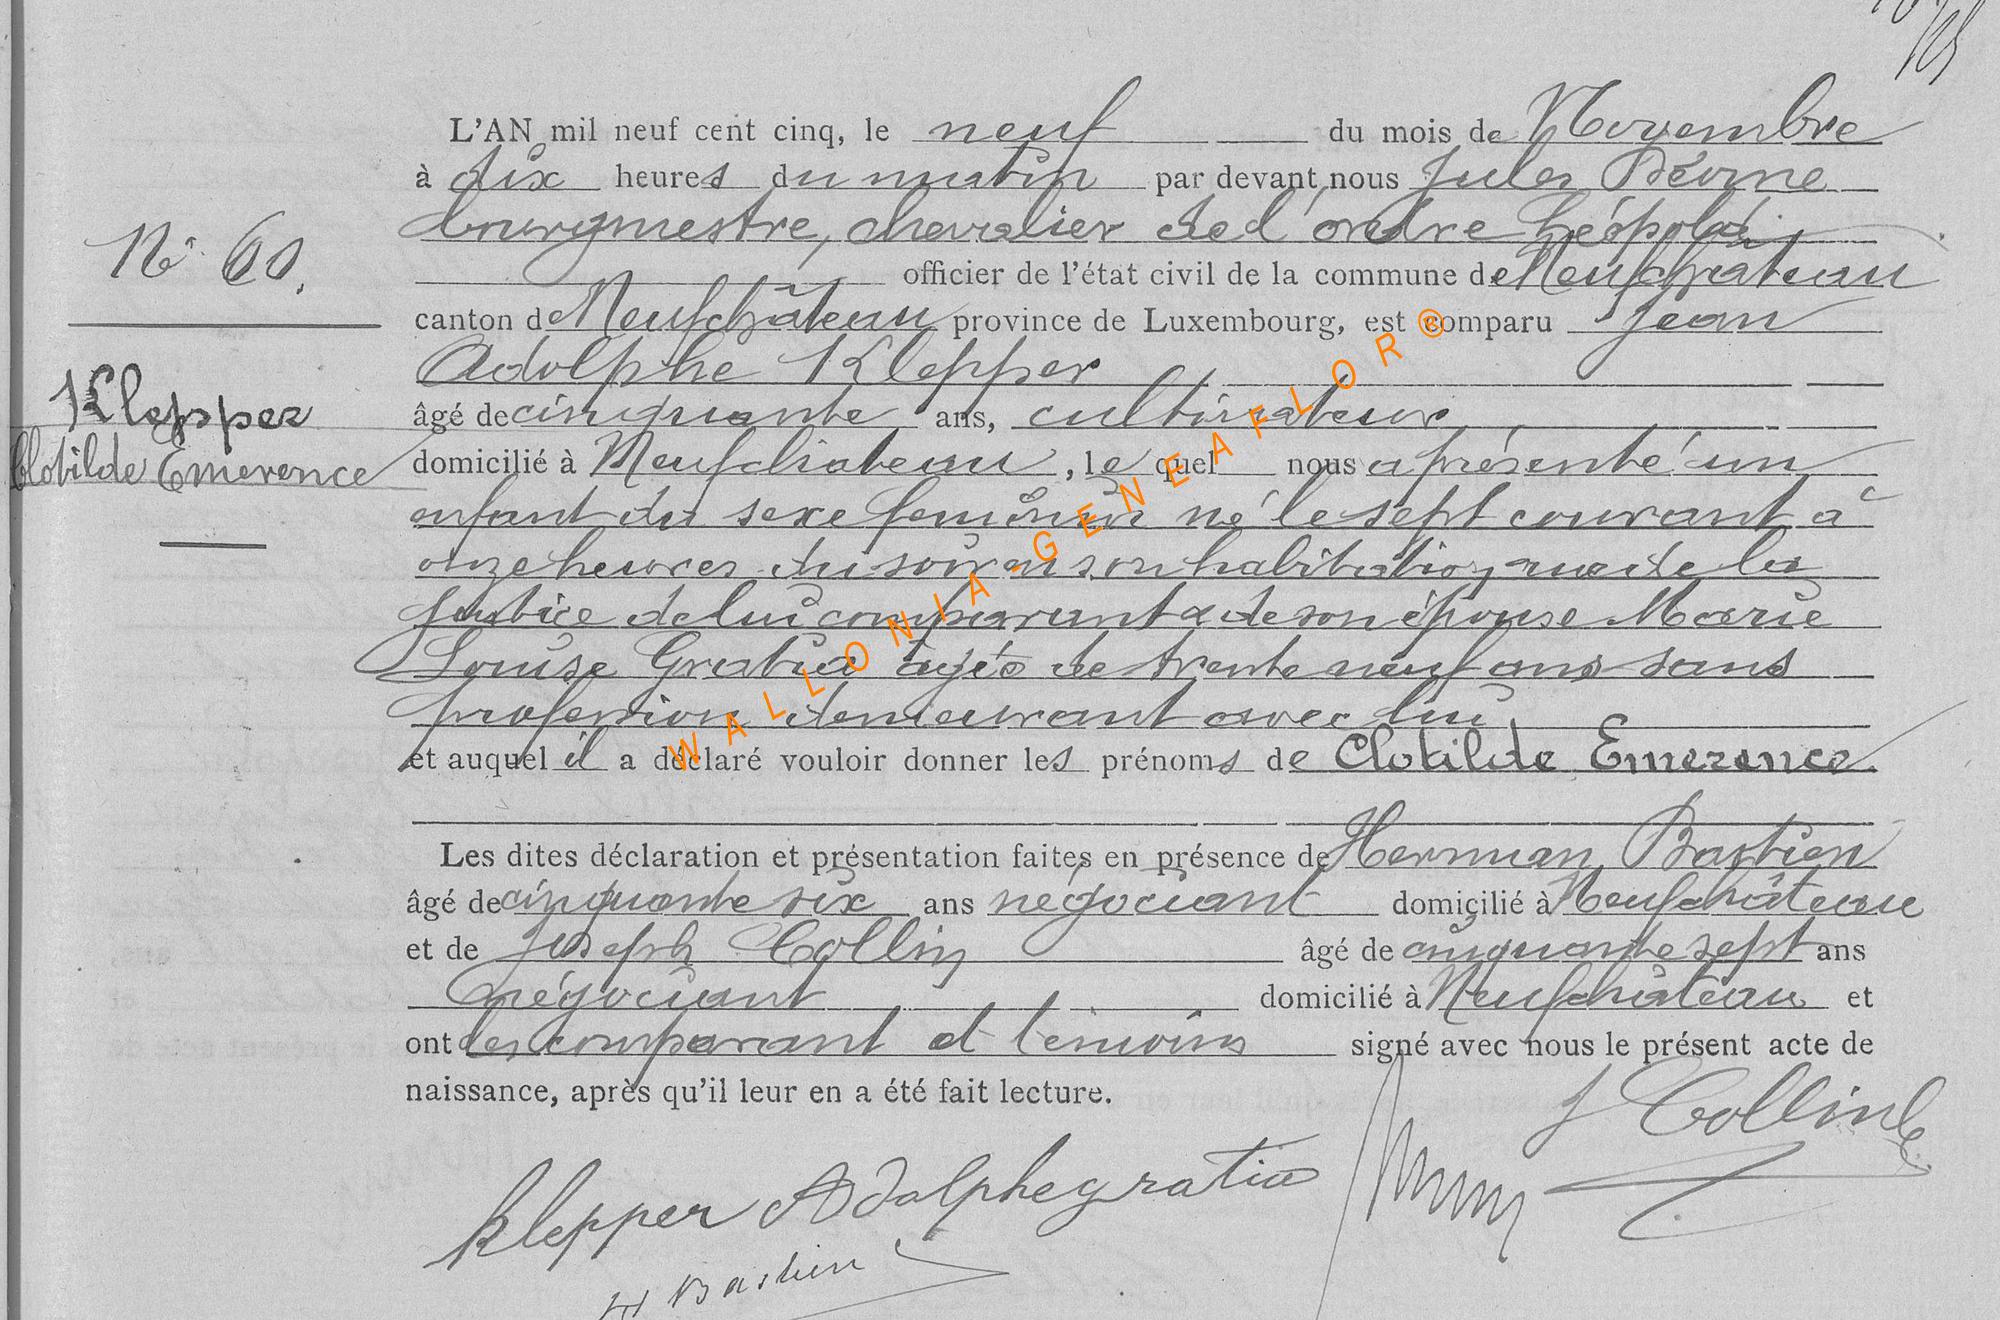 L'AN mil neuf cent cinq, le neuf du mois de Novembre
à dix heures du matin par devant nous Jules
bourgmestre, chevalier de l'ordre Léopold
officier de l'état civil de la commune de Neufchateau
canton de Neufchâteau province de Luxembourg, est comparu Jean
Adolphe Klepper
âgé de cinquante ans, cultivateur
domicilié à Neufchateau, le quel nous a présenté un
enfant du sexe feminin né le sept courant à
onze heures du soir en son habitation, rue de la
Justice de lui comparant & de son épouse Marie
Louise Gratia âgée de trente neuf ans sans
profession demeurant avec lui
et auquel il a déclaré vouloir donner les prénoms de Clotilde Emerence
Les dites déclaration et présentation faites en présence de Herman Bastien
âgé de cinquante six ans négociant domicilié à Neufchâteau
et de Joseph Collin âgé de cinquante sept ans
négociant domicilié à Neufchâteau et
ont les comparant et témoins signé avec nous le présent acte de
naissance, après qu'il leur en a été fait lecture.
N° 60.
Klepper
Clotilde Emerence
J Collin
Klepper Adolphe gratia
H Bastien
WALLONIA-GENEAFLOR®